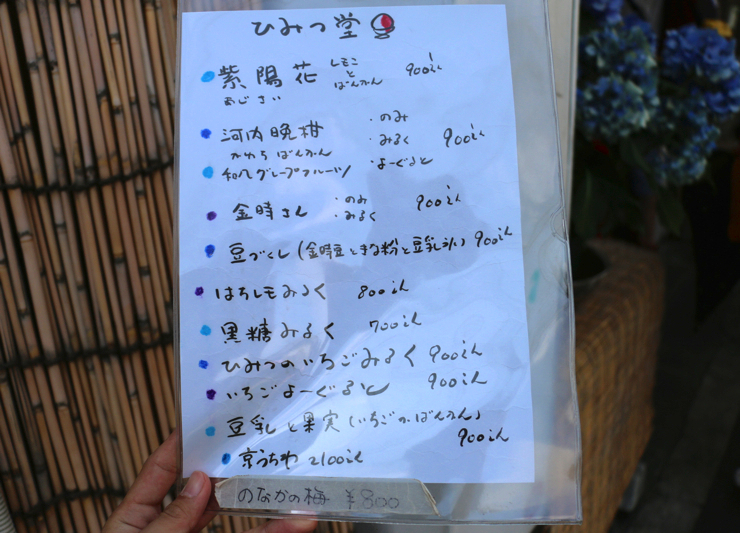 ひみつ堂
紫陽花 レモンとばんかん 900えん
あじさい
河内晩柑 ・のみ ・みるく ・よーぐると 900えん
かわちばんかん
和製グレープフルーツ
金時さん ・のみ ・みるく 900えん
豆づくし(金時豆ときな粉と豆乳) 900えん
はちレモみるく 800えん
黒糖みるく 700えん
ひみつのいちごみるく 900えん
いちごよーぐると 900えん
豆乳と果実(いちごorばんかん)
900えん
京うちわ 2100えん
のなかの梅 ¥800